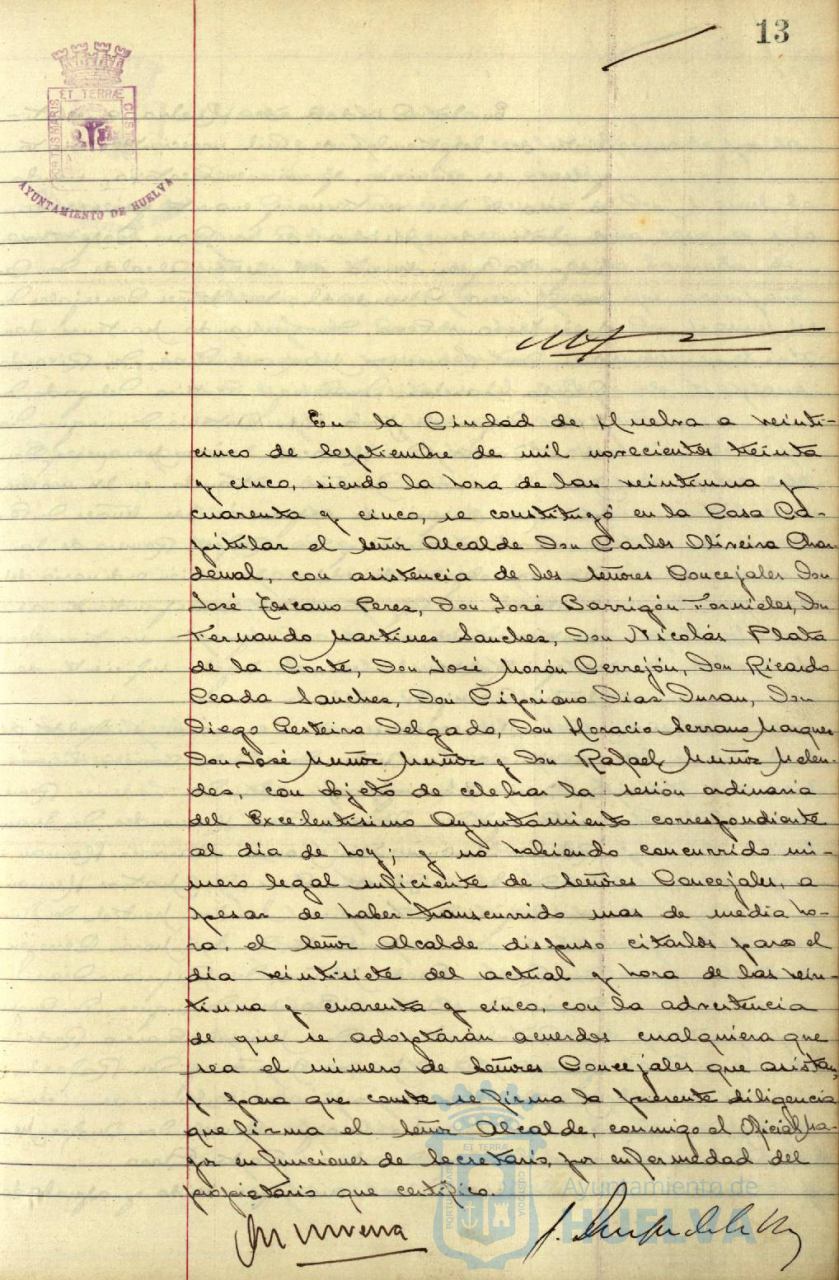 13
PORTUS MARIS
ET TERRÆ
CUSTODIA
AYUNTAMIENTO DE HUELVA
En la Ciudad de Huelva a veinti-
cinco de Septiembre de mil novecientos treinta
y cinco, siendo la hora de las veintiuna y
cuarenta y cinco, se constituyó en la Casa Ca-
pitular el Señor Alcalde Don Carlos Oliveira Chan-
denal, con asistencia de los Señores Concejales Don
José Toscano Peres, Don José Barrigón Fornieles, Don
Fernando Martines Sanches, Don Nicolás Plata
de la Corte, Don José Morón Cerrejón, Don Ricardo
Ceada Sanches, Don Cipriano Dias Duran, Don
Diego Delgado, Don Horacio Serrano Marques
Don José Muñoz Muñoz y Don Rafael Muñoz Melen-
des, con objeto de celebrar la sesión ordinaria
del Excelentísimo Ayuntamiento correspondiente
al día de hoy; y no habiendo concurrido nú-
mero legal suficiente de Señores Concejales, a
pesar de haber transcurrido mas de media ho-
ra, el Señor Alcalde dispuso citarlos para el
día veintisiete del actual y hora de las vein-
tiuna y cuarenta y cinco, con la advertencia
de que se adoptarán acuerdos cualquiera que
sea el número de Señores Concejales que asistan,
y para que conste se firma la presente diligencia
que firma el Señor Alcalde, conmigo el Oficial Ma-
yor en funciones de Secretario, por enfermedad del
propietario que certifico.
Ayuntamiento de
HUELVA